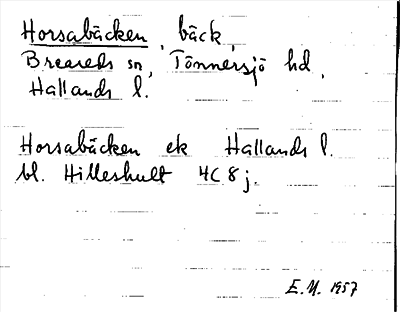 Horsabäcken, bäck,
Breareds sn, Tönnersjö hd,
Hallands l.
Horsabäcken ek Hallands l.
bl. Hilleshult 4C 8j.
E.M. 1957